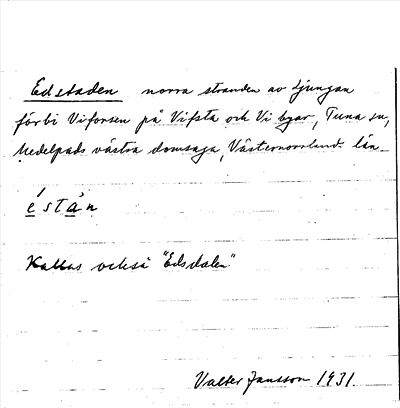 Edstaden norra stranden av Ljungan
förbi Viforsen på Vifsta och Vi byar, Tuna sn,
Medelpads västra domsaga, Västernorrland. län
éstàn
Kallas också "Edsdalen"
Valter Jansson 1931.